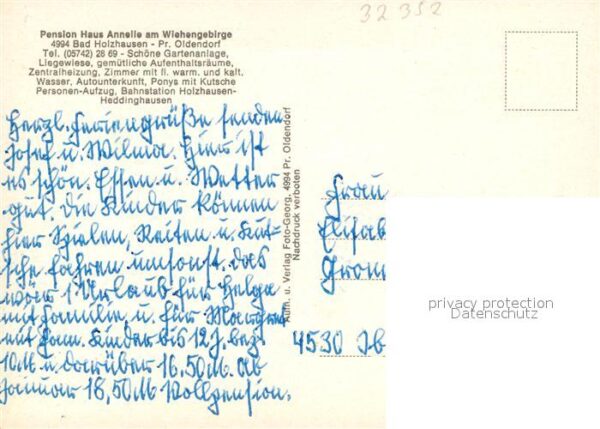 32 352
Pension Haus Annelie am Wiehengebirge
4994 Bad Holzhausen - Pr. Oldendorf
Tel. (05742) 28 69 - Schöne Gartenanlage,
Liegewiese, gemütliche Aufenthaltsräume,
Zentralheizung, Zimmer mit fl. warm. und kalt.
Wasser, Autounterkunft, Ponys mit Kutsche
Personen-Aufzug, Bahnstation Holzhausen-
Heddinghausen
Herzl. Feriengrüße senden
Josef u. Wilma. Hier ist
es schön. Essen u. Wetter
gut. Die Kinder können
hier Spielen, Reiten u. Kut-
sche fahren umsonst. Das
wär 1 Urlaub für Helga
mit Familie u. für Margret
mit Fam. Kinder bis 12 J. bez.
10 M u. darüber 16,50 M. ab
Januar 18,50 M Vollpension.
Aufn. u. Verlag Foto-Georg, 4994 Pr. Oldendorf
Nachdruck verboten
Frau
Elisab
Grom
4530 Ib
privacy protection
Datenschutz